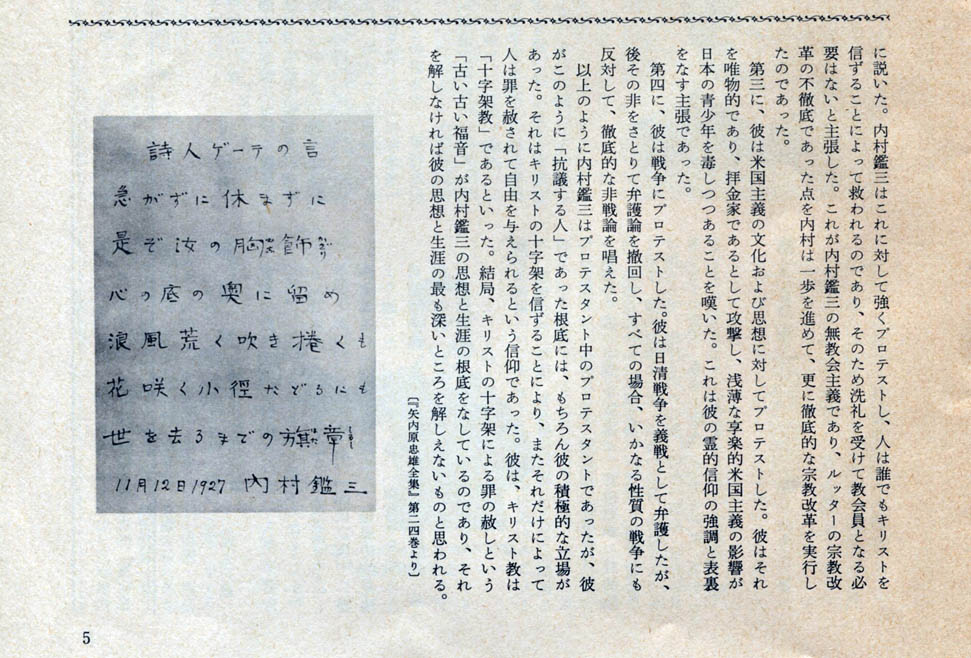 に説いた。内村鑑三はこれに対して強くプロテストし、人は誰でもキリストを
信ずることによって救われるのであり、そのため洗礼を受けて教会員となる必
要はないと主張した。これが内村鑑三の無教会主義であり、ルッターの宗教改
革の不徹底であった点を内村は一歩を進めて、更に徹底的な宗教改革を実行し
たのであった。
第三に、彼は米国主義の文化および思想に対してプロテストした。彼はそれ
を唯物的であり、拝金家であるとして攻撃し、浅薄な享楽的米国主義の影響が
日本の青少年を毒しつつあることを嘆いた。これは彼の霊的信仰の強調と表裏
をなす主張であった。
第四に、彼は戦争にプロテストした。彼は日清戦争を義戦として弁護したが、
後その非をさとりて弁護論を撤回し、すべての場合、いかなる性質の戦争にも
反対して、徹底的な非戦論を唱えた。
以上のように内村鑑三はプロテスタント中のプロテスタントであったが、彼
がこのように「抗議する人」であった根底には、もちろん彼の積極的な立場が
あった。それはキリストの十字架を信ずることにより、またそれだけによって
人は罪を赦されて自由を与えられるという信仰であった。彼は、キリスト教は
「十字架教」であるといった。結局、キリストの十字架による罪の赦しという
「古い古い福音」が内村鑑三の思想と生涯の根底をなしているのであり、それ
を解しなければ彼の思想と生涯の最も深いところを解しえないものと思われる。
〔『矢内原忠雄全集』第二四巻より〕
詩人ゲーテの言
急がずに休まずに
是ぞ汝の胸飾
心の底の奥に留め
浪風荒く吹き捲くも
花咲く小徑たどるにも
世を去るまでの旗章
11月12日1927 内村鑑三
5